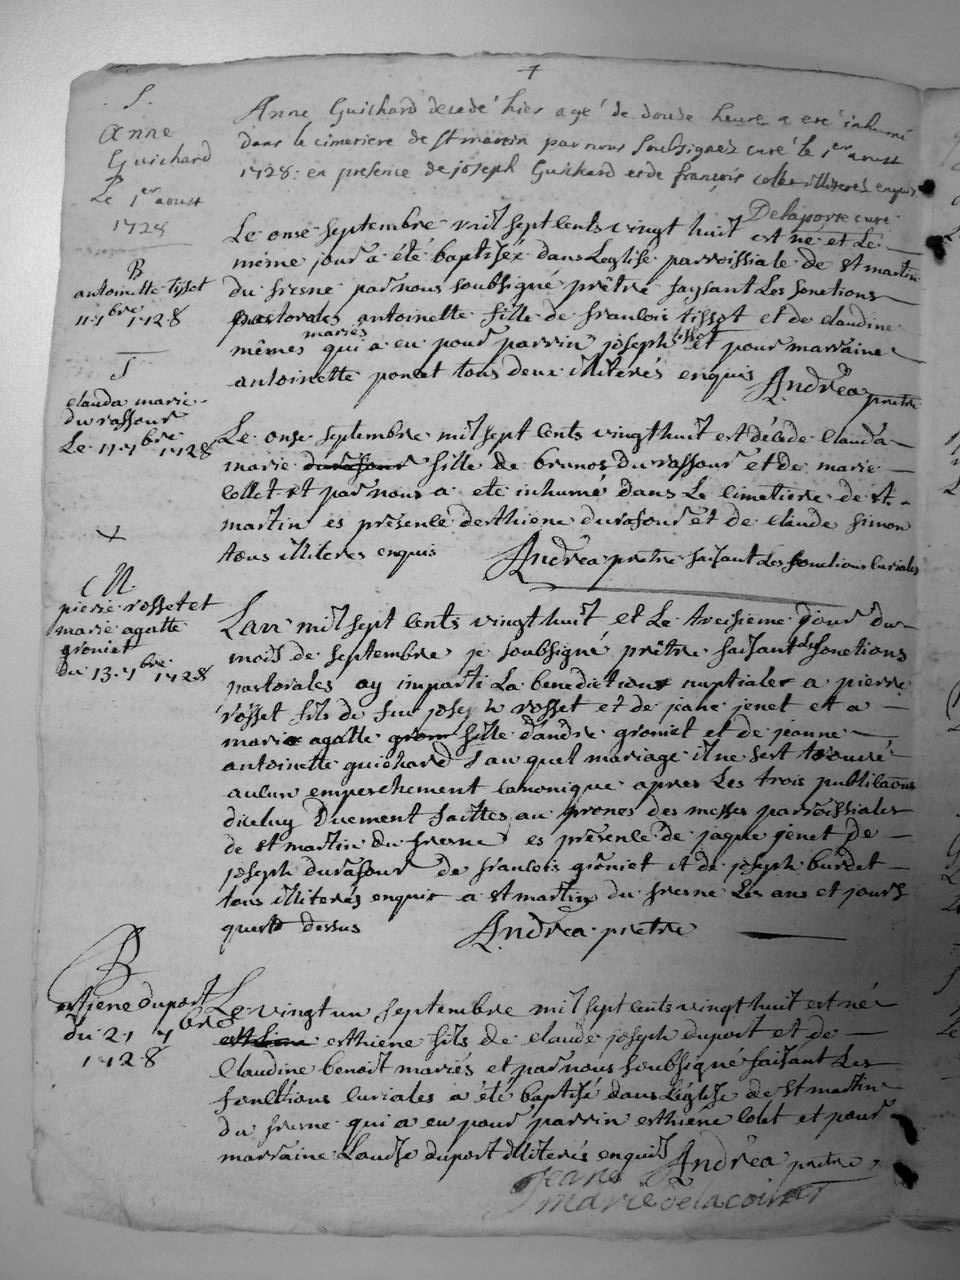 S.
Anne
Guichard
Le 1er aoust
1728
Anne Guichard decedé hier agé de douse heures a eté inhumé
dans le cimetiere de St martin par nous soubsignez curé le 1er aoust
1728: en presence de joseph Guichard et de françois collet illiterés enquis
Delaporte curé
B
antoinette tissot
11. 7bre 1728
Le onse septembre mil sept cents vingt huit est né et Le
même jour a été baptisée dans Leglise parroissiale de st martin
du fresne par nous soubsigné prêtre faysant Les fonctions
pastorales antoinette fille de francois tissot et de claudine
mêmes mariés qui a eu pour parrin joseph tissot et pour marraine
antoinette poncet tous deux illiterés enquis Andréa prètre
S
clauda marie
durassour
Le 11. 7bre 1728
Le onse septembre mil sept cents vingt huit est décede clauda
marie durassour fille de brunos durassour et de marie
collet et par nous a eté inhumé dans Le cimetiere de st
martin es présence desthiene durasour et de claude simon
tous illiteres enquis Andréa prêtre faisant Les fonctions curiales
M.
pierre rosset et
marie agatte
groniet
du 13. 7bre 1728
Lan mil sept cents vingt huit et Le treisieme jour du
mois de septembre je soubsigné prêtre faisant des fonctions
pastorales ay imparti La benediction nuptiales a pierre
rosset fils de feu joseph rosset et de jeane jenet et a
marie agatte gron fille dandre groniet et de jeanne
antoinette guichard sauquel mariage il ne sest trouvé
aucun empeschement canonique apres Les trois publicaons
diceluy Duement faittes au prones des messes parroissiales
de st martin du fresne es présence de jaque jenet de
joseph durasour de francois groniet et de joseph burdet
tous illiterés enquis a st martin du fresne Les ans et jours
que dessus Andréa prètre
B
esthiene duport
du 21 7bre
1728
Le vingt un septembre mil sept cents vingt huit est né
esthiene esthiene fils de claude joseph duport et de
Claudine benoit mariés et par nous soubsigné faisant Les
fonctions curiales a été baptisé dans Léglise de st martin
du fresne qui a eu pour parrin esthiene colet et pour
marraine duport illiterés enquis Andréa prètre
jeane
marie